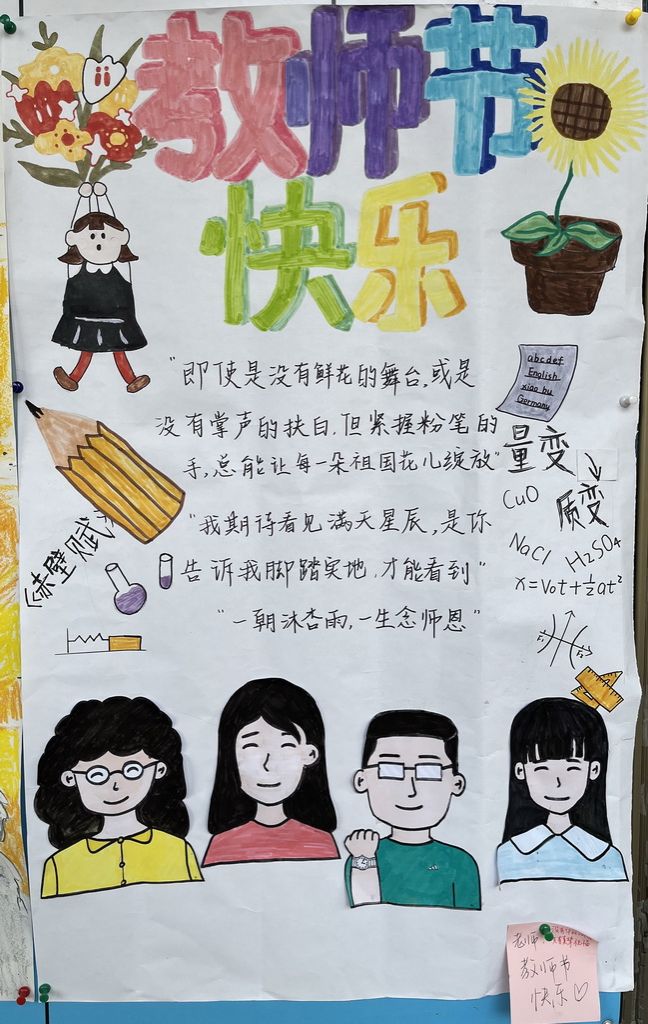 教师节
快乐
"即使是没有鲜花的舞台,或是
没有掌声的扶白.但紧握粉笔的
手,总能让每一朵祖国花儿绽放"
"我期待看见满天星辰,是你
告诉我脚踏实地,才能看到"
"一朝沐杏雨,一生念师恩"
abcdef
English
xiao bu
Germany
量变
质变
CuO
NaCl
H₂SO₄
x=v₀t+½at²
《赤壁赋》
老师,
教师节
快乐♡